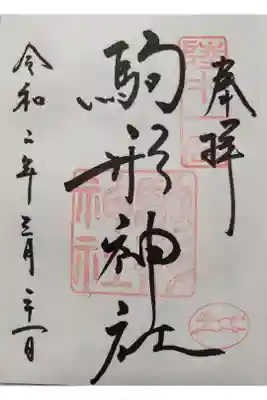 奉拝
駒形神社
令和二年三月二十一日